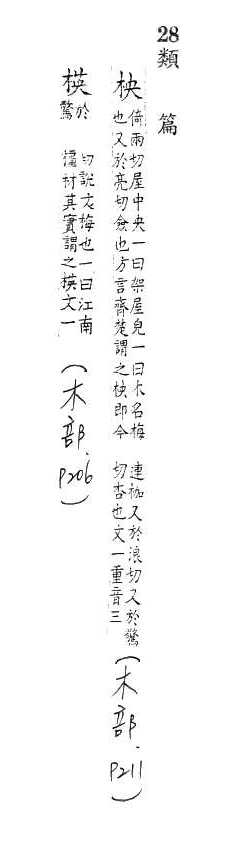 28 類篇
柍 倚兩切屋中央一曰架屋皃一曰木名梅
也又於亮切僉也方言齊楚謂之柍即今
連枷又於浪切又於驚
切杏也文一重音三 (木部. P211)
楧 於
驚
切說文梅也一曰江南
橦材其實謂之楧文一 (木部. P206)